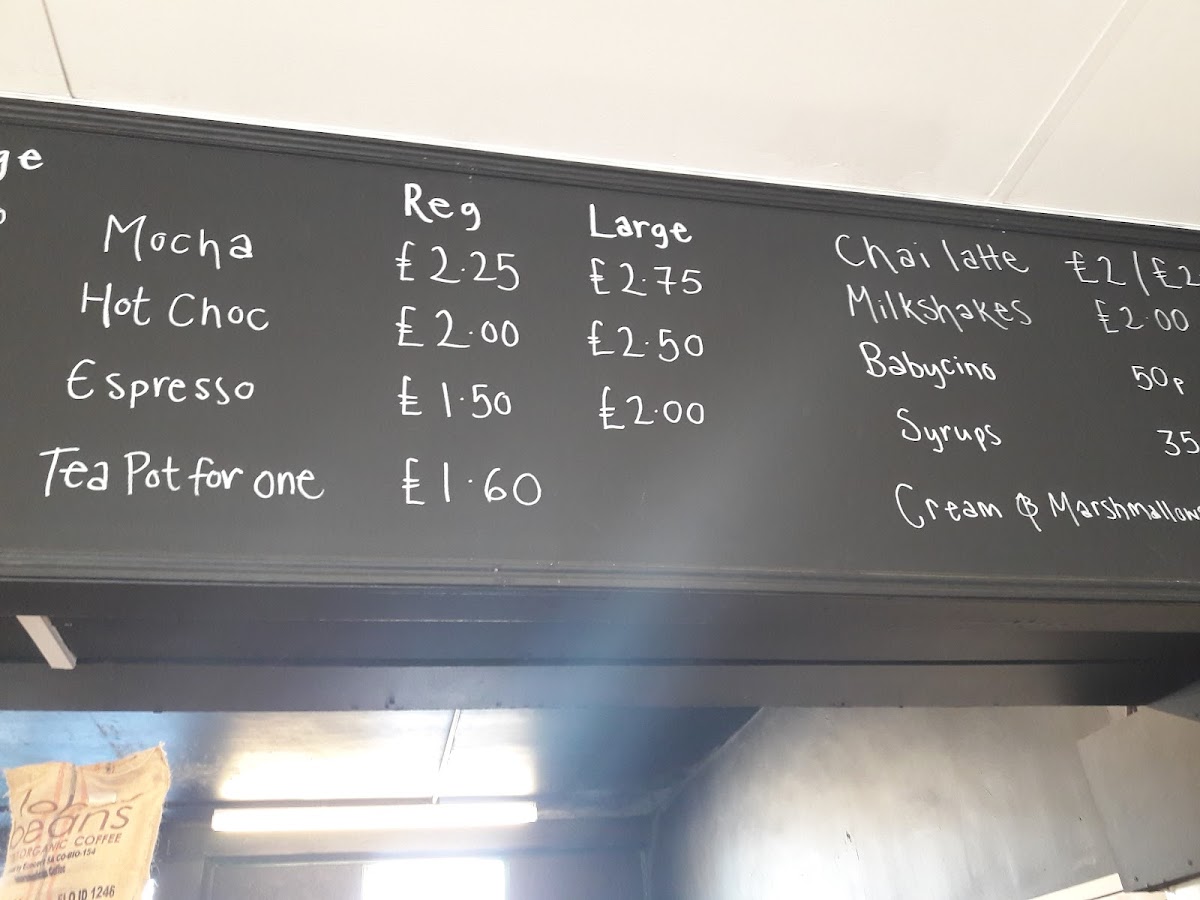 ge
Reg Large
Mocha £2.25 £2.75
Hot Choc £2.00 £2.50
Espresso £1.50 £2.00
Tea Pot for one £1.60
Chai latte £2/£2
Milkshakes £2.00
Babycino 50p
Syrups 35
Cream & Marshmallows
beans
ORGANIC COFFEE
1246